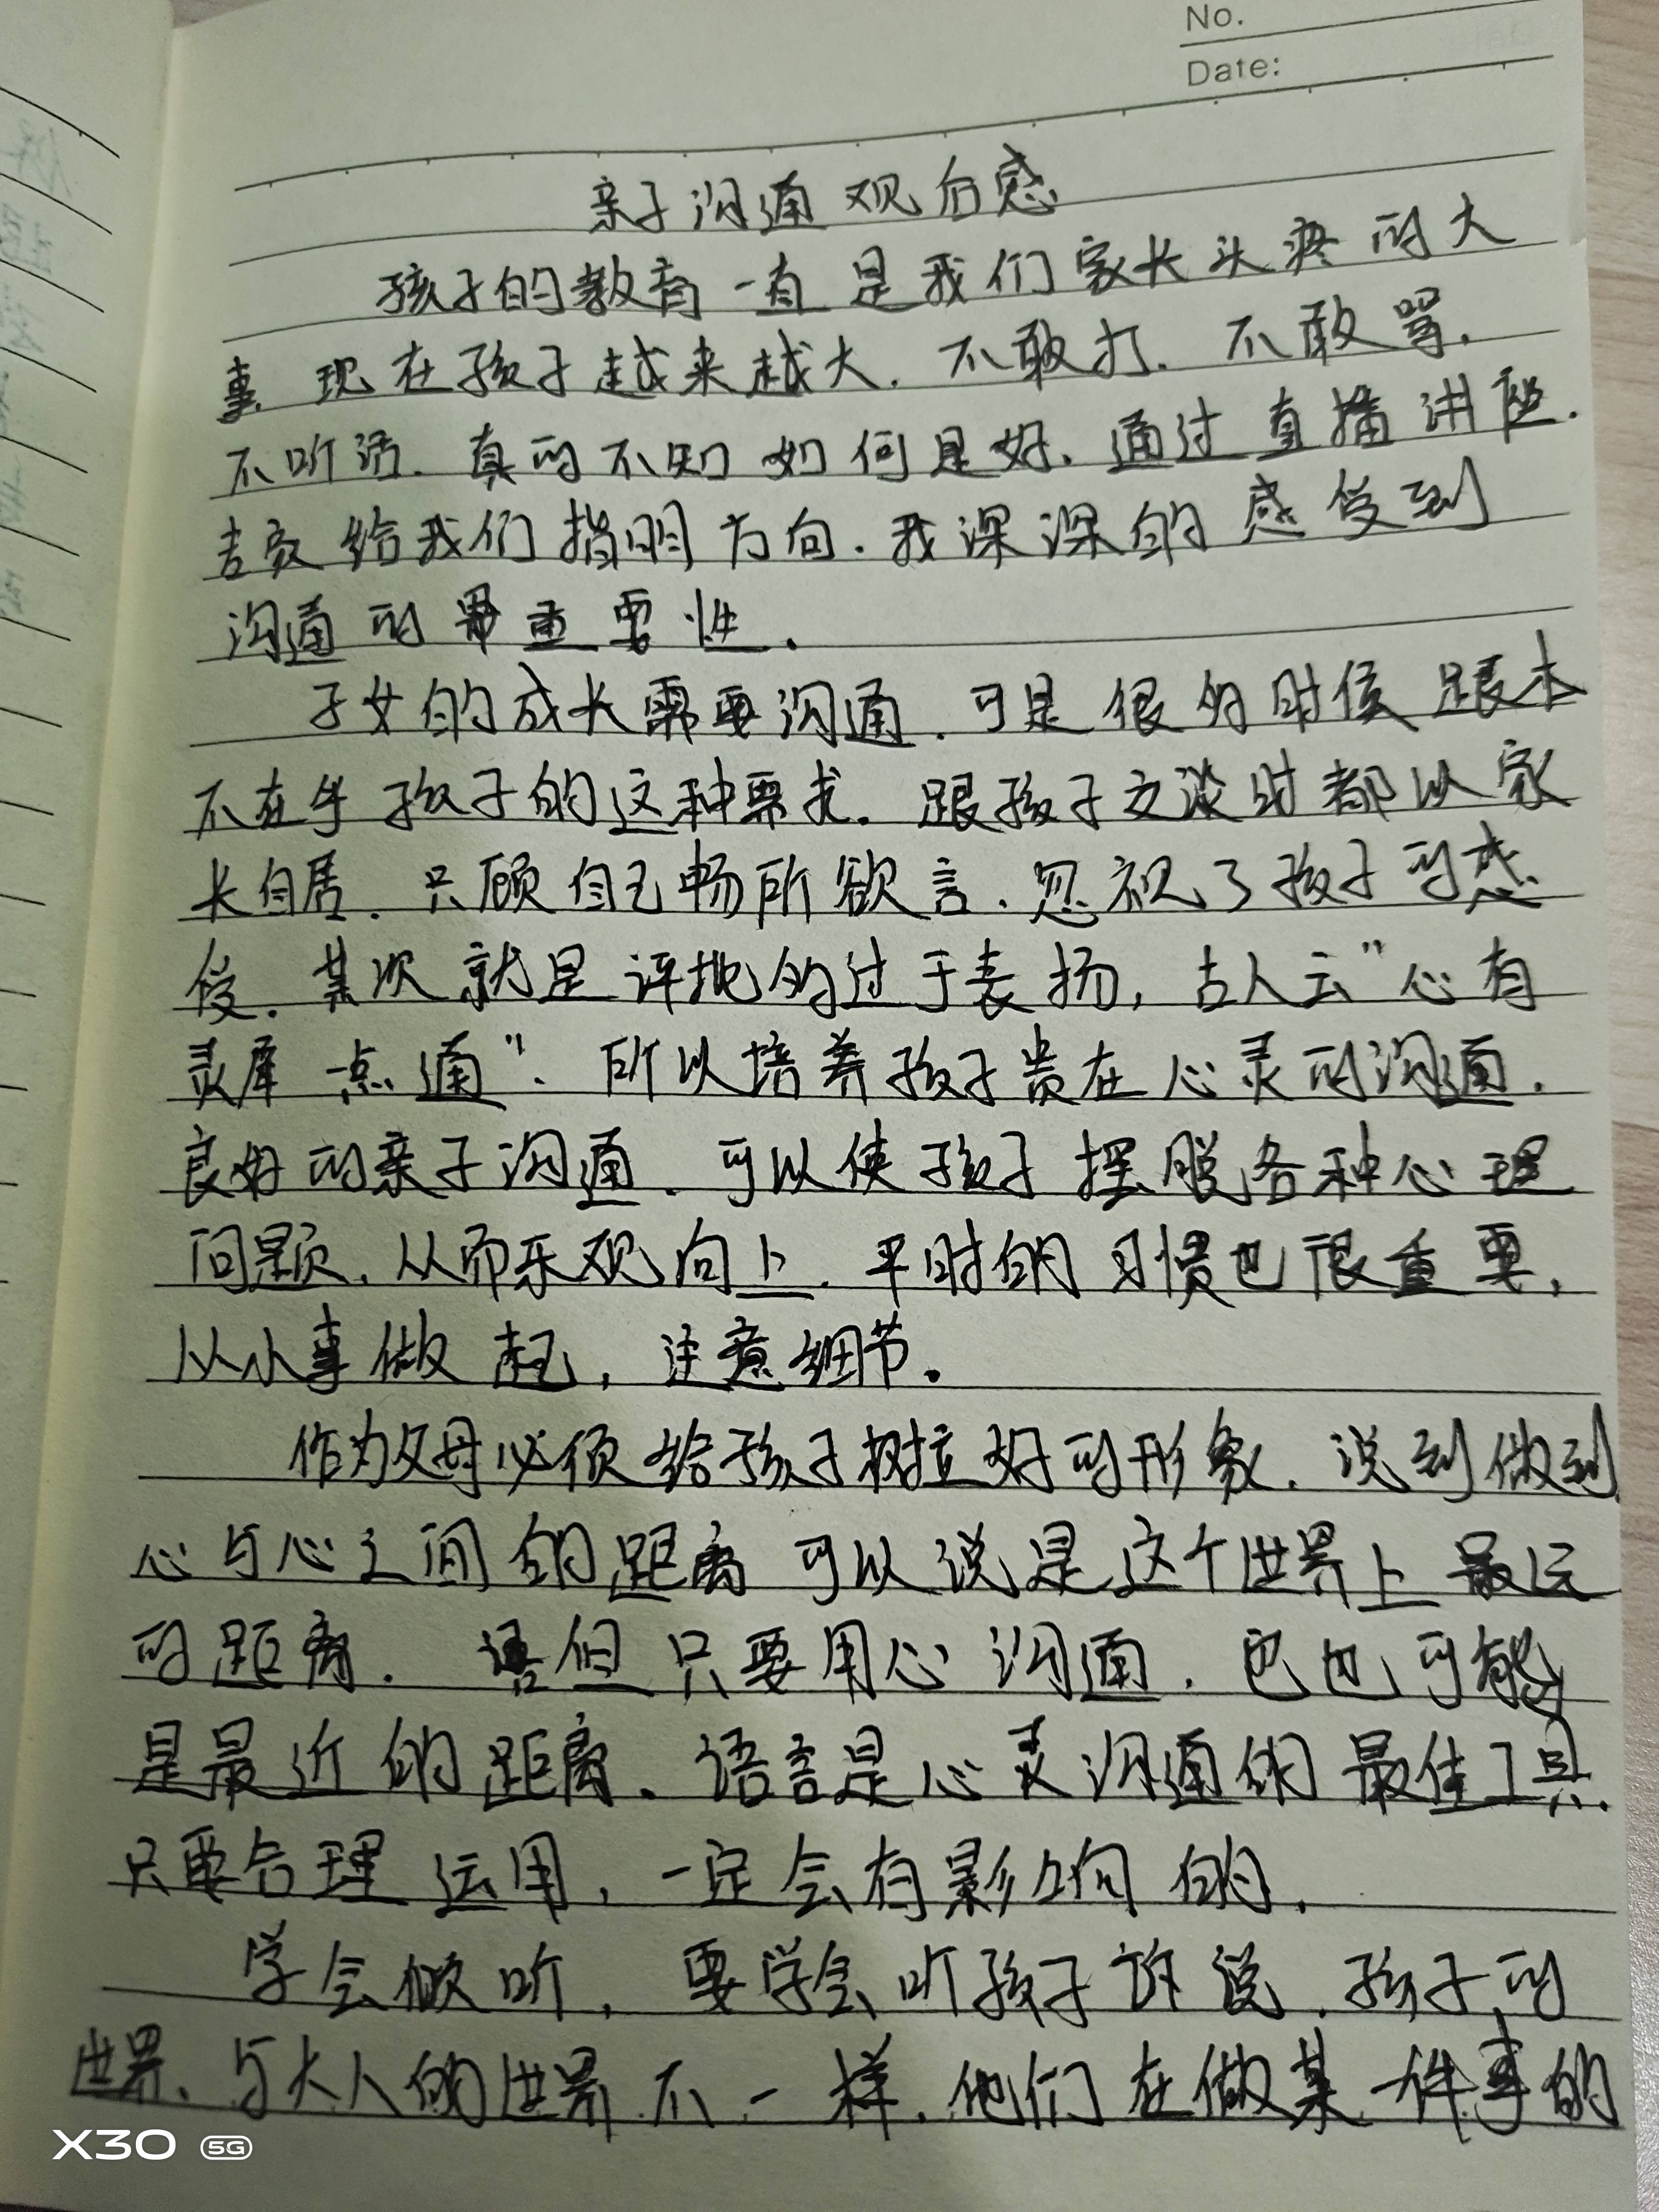 No.
Date:
亲子沟通观后感
孩子的教育一直是我们家长头疼的大
事.现在孩子越来越大.不敢打.不敢骂.
不听话.真的不知如何是好.通过直播讲座.
专家给我们指明方向.我深深的感受到
沟通的最重要性.
子女的成长需要沟通.可是很多时侯跟本
不在乎孩子的这种要求.跟孩子交谈时都以家
长自居.只顾自己畅所欲言.忽视了孩子的感
受.其次就是评批的过于表扬,古人云"心有
灵犀一点通".所以培养孩子贵在心灵的沟通.
良好的亲子沟通.可以使孩子摆脱各种心理
问题.从而乐观向上.平时的习惯也很重要,
从小事做起,注意细节。
作为父母必须给孩子树立好的形象.说到做到
心与心之间的距离可以说是这个世界上最远
的距离.但只要用心沟通.它也可能
是最近的距离.语言是心灵沟通的最佳工具.
只要合理运用,一定会有影响的.
学会倾听,要学会听孩子诉说.孩子的
世界.与大人的世界不一样.他们在做某一件事的
X30 5G